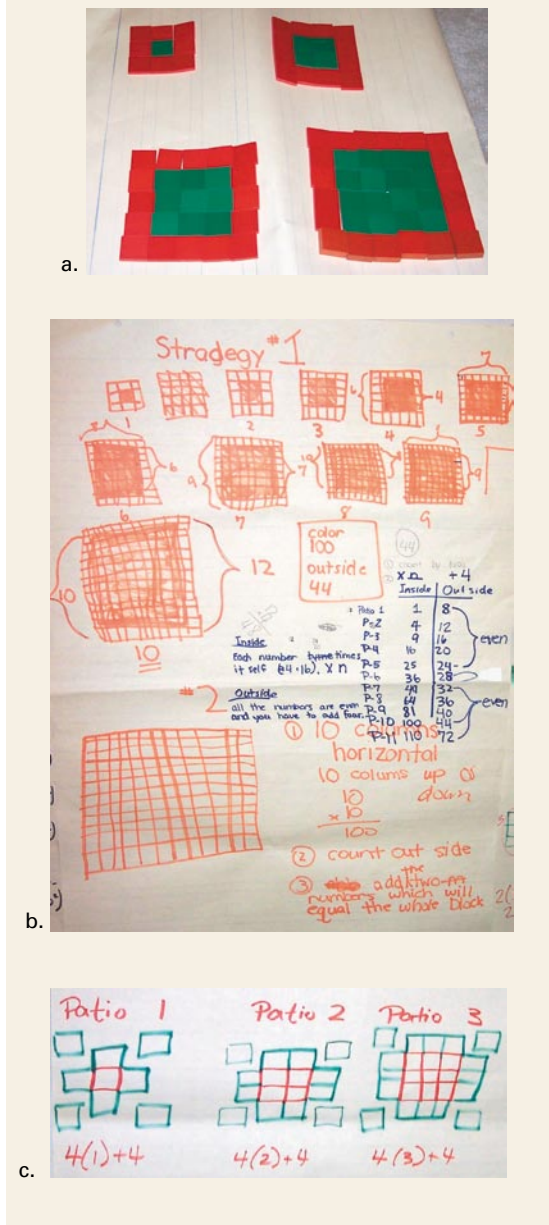 a.
Stradegy #1
7
6
4
1
2
3
4
5
6
9
7
10
9
6
7
8
9
10
12
10
color
100
outside
44
44
x n +4
Inside Outside
Patio 1 1 8
P-2 4 12
P-3 9 16
P-4 16 20
P-5 25 24
P-6 36 28
P-7 49 32
P-8 64 36
P-9 81 40
P-10 100 44
P-11 110 72
even
even
Inside
Each number times
it self (4·16), x n
Outside
all the numbers are even
and you have to add four.
#2
① 10 columns
horizontal
10 colums up or
down
10
x 10
100
② count out side
③ add the two
numbers which will
equal the whole block
b.
Patio 1 Patio 2 Patio 3
4(1)+4 4(2)+4 4(3)+4
c.